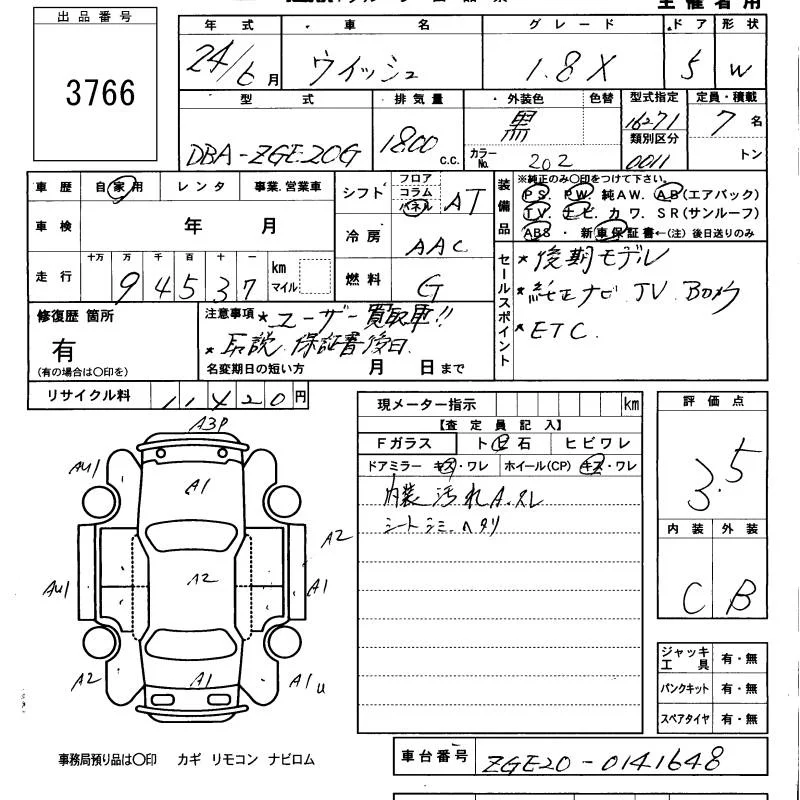 出品番号
3766
年式 車名 グレード ドア 形状
24/6月 ウイッシュ 1.8X 5 W
型式 排気量 外装色 色替 型式指定 定員・積載
DBA-ZGE20G 1800 c.c. 黒 16271 7名
カラーNo. 202 類別区分 0011 トン
車歴 自家用 レンタ 事業.営業車
車検 年 月
走行 十万 万 千 百 十 一 km マイル
9 4 5 3 7
シフト フロア コラム パネル AT
冷房 AAC
燃料 G
装備品
※純正のみ〇印をつけて下さい。
PS. PW. 純AW. AB(エアバック)
TV. ナビ. カワ. SR(サンルーフ)
ABS・新車保証書←(注)後日送りのみ
セールスポイント
*後期モデル
*純正ナビ.TV.Bカメラ
*ETC.
修復歴 箇所
有
(有の場合は〇印を)
注意事項 *ユーザー買取車!!
*取説.保証書後日.
名変期日の短い方 月 日まで
リサイクル料 11420円
現メーター指示 km
【査定員記入】
Fガラス トビ石 ヒビワレ
ドアミラー キズ・ワレ ホイール(CP) キズ・ワレ
内装汚れA.スレ
シートシミ.ヘタリ
評価点
3.5
内装 外装
C B
A3P
AU1 A1
A2
AU1 A2 A1
A2 A1 A1U
ジャッキ工具 有・無
パンクキット 有・無
スペアタイヤ 有・無
事務局預り品は〇印 カギ リモコン ナビロム
車台番号 ZGE20-0141648